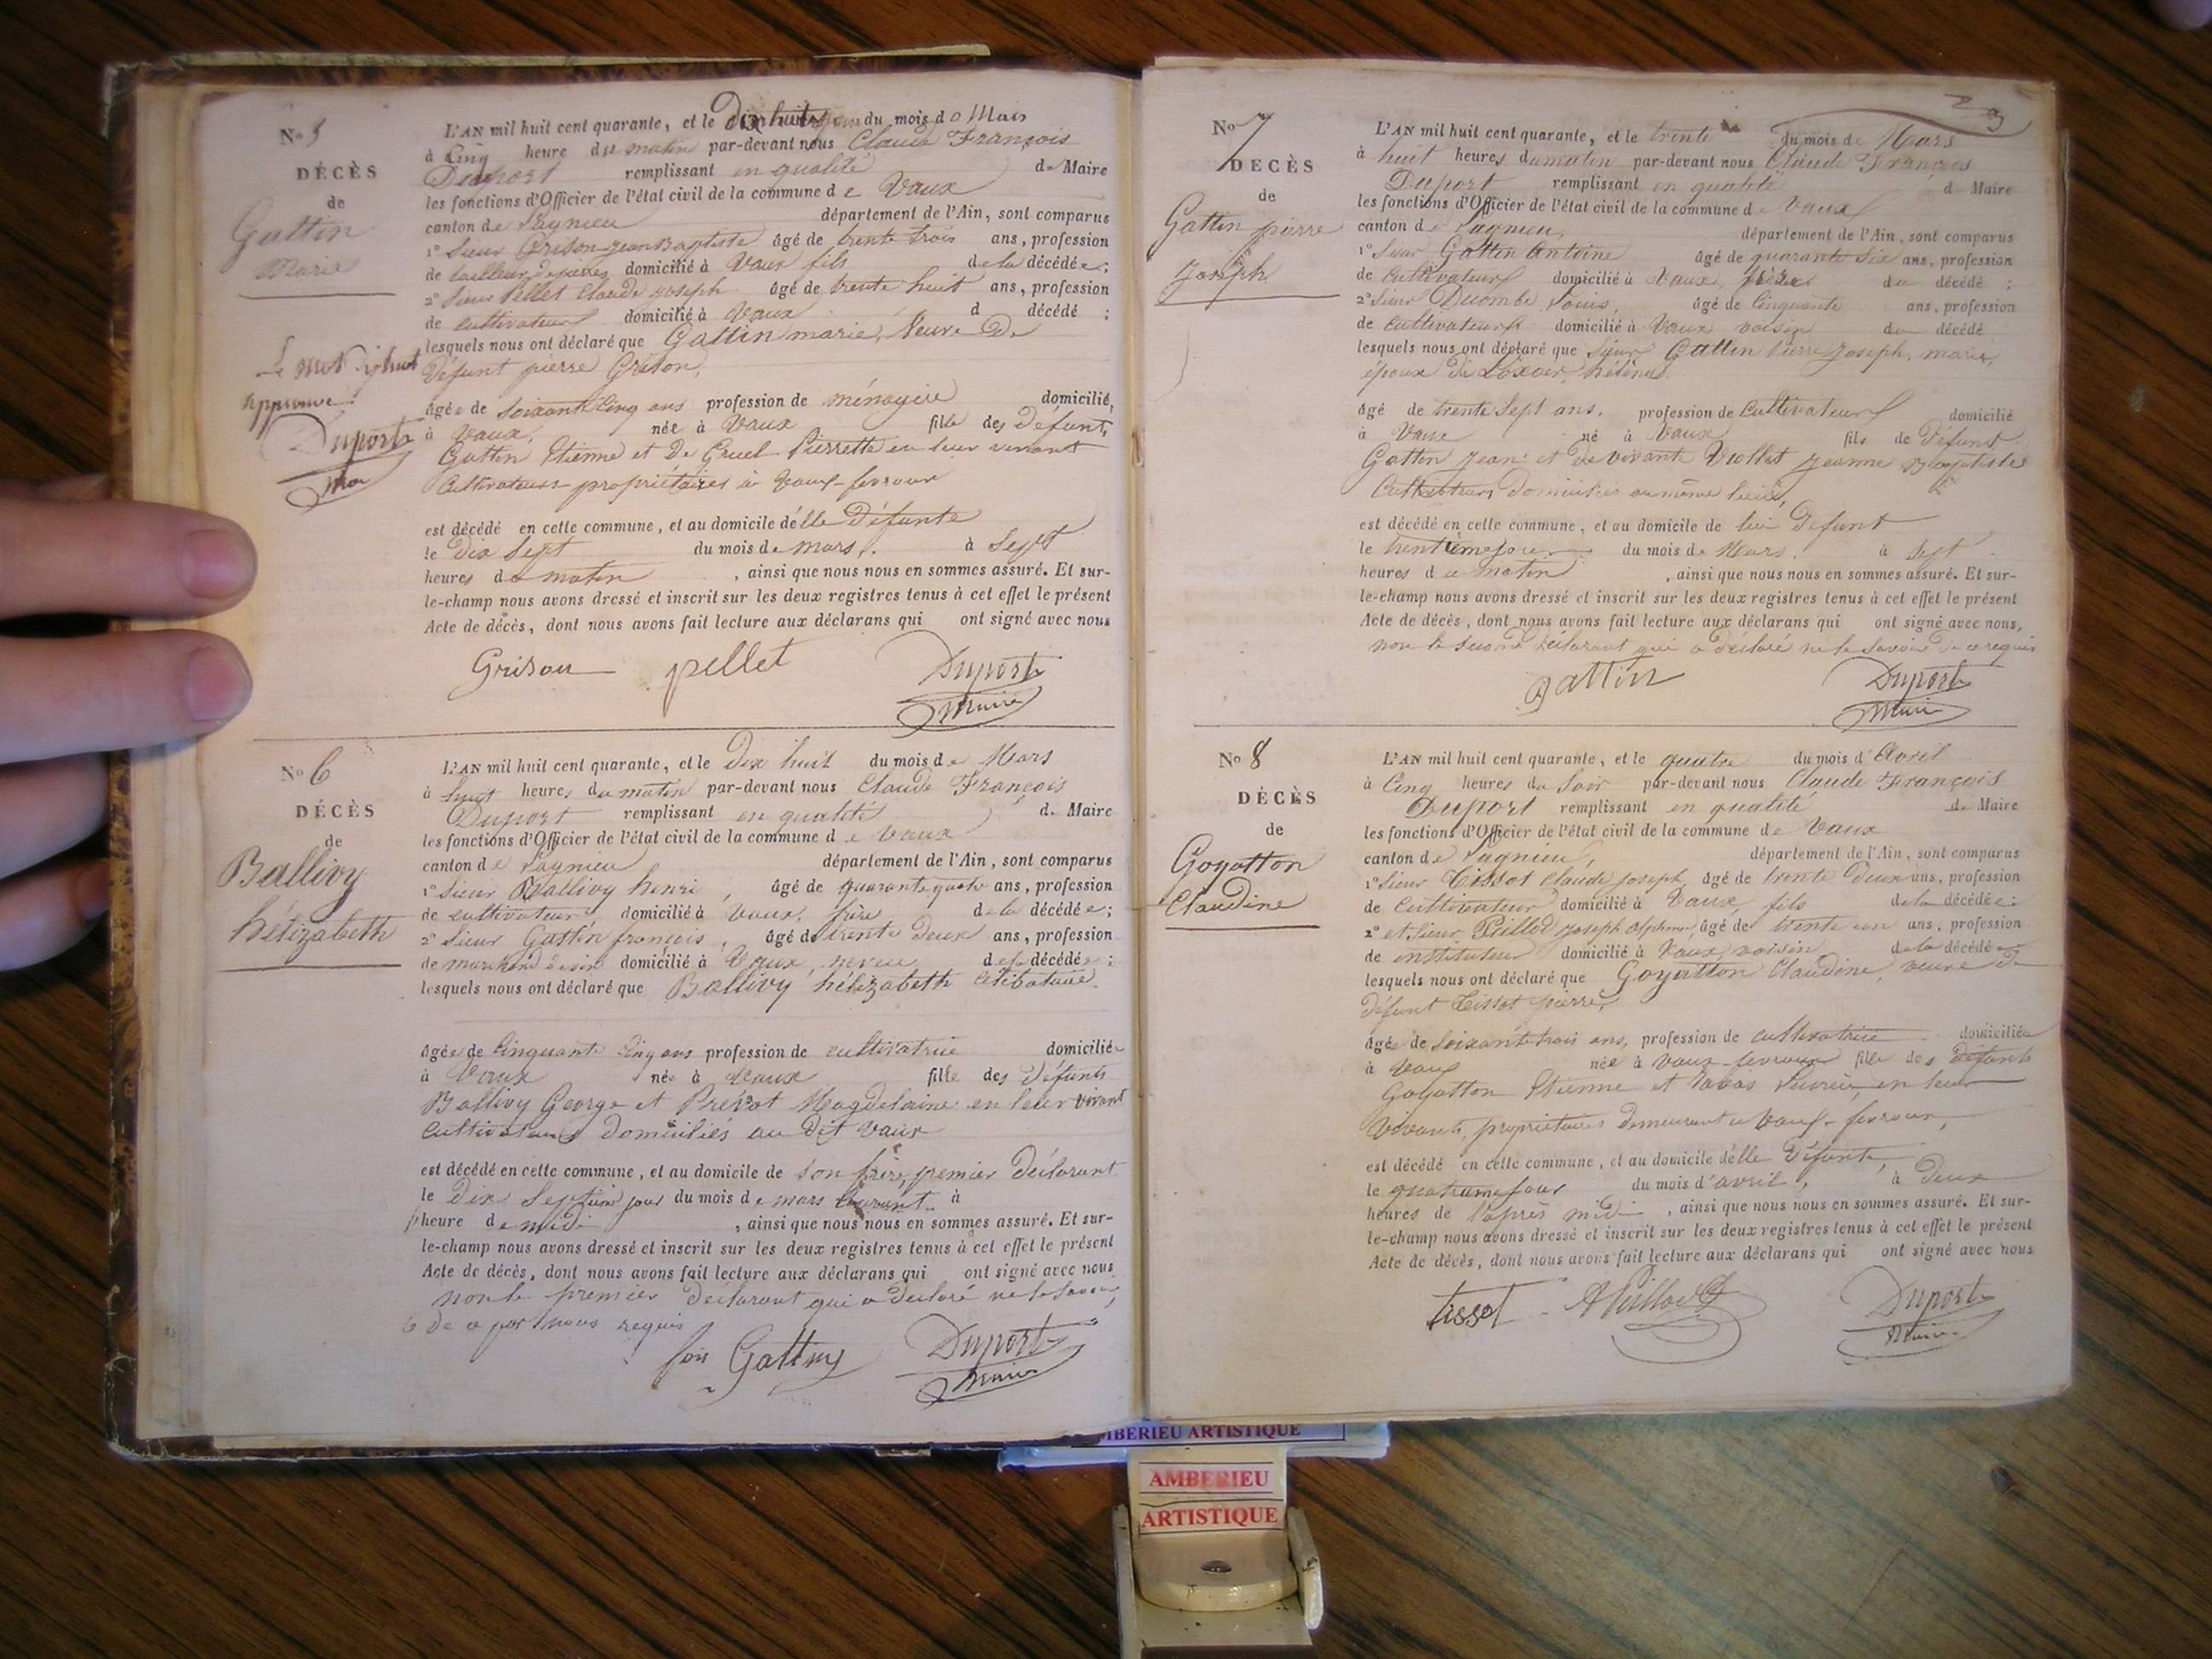 No 5
DÉCÈS
de
Gattin
Marie
Le mot dixhuit
approuvé
Duport
L'AN mil huit cent quarante, et le Dix huit du mois de Mars
à Cinq heure du matin par-devant nous Claude François
Duport remplissant en qualité de Maire
les fonctions d'Officier de l'état civil de la commune de Vaux
canton de Lagnieu département de l'Ain, sont comparus
1º Sieur Grison Jean Baptiste âgé de trente trois ans, profession
de tailleur de pierres domicilié à Vaux fils de la décédée;
2º Sieur Pellet Claude Joseph âgé de trente huit ans, profession
de cultivateur domicilié à Vaux d décédé ;
lesquels nous ont déclaré que Gattin marie, Veuve De
Défunt pierre Grison,
âgée de soixante cinq ans profession de ménagère domicilié,
à Vaux, née à Vaux fille des Défunts
Gattin Etienne et De Gruel Pierrette en leur vivant
Cultivateurs propriétaires à Vaux-fevroux
est décédé en cette commune, et au domicile d'elle Défunte
le Dix Sept du mois de mars, à Sept
heures du matin , ainsi que nous nous en sommes assuré. Et sur-
le-champ nous avons dressé et inscrit sur les deux registres tenus à cet effet le présent
Acte de décès, dont nous avons fait lecture aux déclarans qui ont signé avec nous
Grison pellet Duport
Maire
No 6
DÉCÈS
de
Ballivy
hélizabeth
L'AN mil huit cent quarante, et le Dix huit du mois de Mars
à heures du matin par-devant nous Claude François
Duport remplissant en qualité de Maire
les fonctions d'Officier de l'état civil de la commune de Vaux
canton de Lagnieu département de l'Ain, sont comparus
1º Sieur Ballivy henri, âgé de quarante quatre ans, profession
de cultivateur, domicilié à Vaux, frère de la décédée;
2º Sieur Gattin françois, âgé de trente Deux ans, profession
de marchand de vin domicilié à Vaux, neveu de la décédée;
lesquels nous ont déclaré que Ballivy hélizabeth célibataire.
âgée de Cinquante Cinq ans profession de cultivatrice domiciliée
à Vaux née à Vaux fille des Défunts
Ballivy George et Prévot Magdelaine en leur vivant
Cultivateurs Domiciliés au Dit Vaux
est décédé en cette commune, et au domicile de son frère, premier Déclarant
le Dix Septième jour du mois de mars Courant à
heure de midi , ainsi que nous nous en sommes assuré. Et sur-
le-champ nous avons dressé et inscrit sur les deux registres tenus à cet effet le présent
Acte de décès, dont nous avons fait lecture aux déclarans qui ont signé avec nous
non le premier Déclarant qui a déclaré ne le savoir,
de ce par nous requis
fois Gattin Duport
Maire
3
No 7
DÉCÈS
de
Gattin pierre
Joseph
L'AN mil huit cent quarante, et le trente du mois de Mars
à huit heures du matin par-devant nous Claude François
Duport remplissant en qualité d Maire
les fonctions d'Officier de l'état civil de la commune de Vaux
canton de Lagnieu, département de l'Ain, sont comparus
1º Sieur Gattin Antoine âgé de quarante Six ans, profession
de Cultivateur domicilié à Vaux, frère du décédé ;
2º Sieur Ducombe Louis, âgé de Cinquante ans, profession
de Cultivateur domicilié à Vaux voisin du décédé
lesquels nous ont déclaré que Sieur Gattin Pierre Joseph, marié,
époux de hélène.
âgé de trente Sept ans, profession de Cultivateur domicilié
à Vaux né à Vaux fils de Défunt
Gattin Jean et de vivante Viollet Jeanne Baptiste
Cultivateurs Domiciliés au même lieu,
est décédé en cette commune, et au domicile de lui Défunt
le trentième jour du mois de Mars. à Sept
heures du matin , ainsi que nous nous en sommes assuré. Et sur-
le-champ nous avons dressé et inscrit sur les deux registres tenus à cet effet le présent
Acte de décès, dont nous avons fait lecture aux déclarans qui ont signé avec nous,
non le second Déclarant qui a déclaré ne le savoir de ce requis
gattin Duport
Maire
No 8
DÉCÈS
de
Goyatton
Claudine
L'AN mil huit cent quarante, et le quatre du mois d'Avril
à Cinq heures du Soir par-devant nous Claude François
Duport remplissant en qualité de Maire
les fonctions d'Officier de l'état civil de la commune de Vaux
canton de Lagnieu, département de l'Ain, sont comparus
1º Sieur Tissot Claude Joseph, âgé de trente Deux ans, profession
de Cultivateur domicilié à Vaux, fils de la décédée;
2º et Sieur Joseph Alphonse, âgé de trente un ans, profession
de instituteur domicilié à Vaux, voisin de la décédée
lesquels nous ont déclaré que Goyatton Claudine, veuve de
Défunt Tissot pierre,
âgée de Soixante trois ans, profession de cultivatrice domiciliée
à Vaux née à Vaux-fevroux fille des Défunts
Goyatton Etienne et en leur
Vivants, propriétaires Demeurant à Vaux-fevroux,
est décédé en cette commune, et au domicile d'elle Défunte,
le quatrième jour du mois d'avril, à Deux
heures de l'après midi , ainsi que nous nous en sommes assuré. Et sur-
le-champ nous avons dressé et inscrit sur les deux registres tenus à cet effet le présent
Acte de décès, dont nous avons fait lecture aux déclarans qui ont signé avec nous
tissot Duport
Maire
AMBERIEU ARTISTIQUE
AMBERIEU
ARTISTIQUE